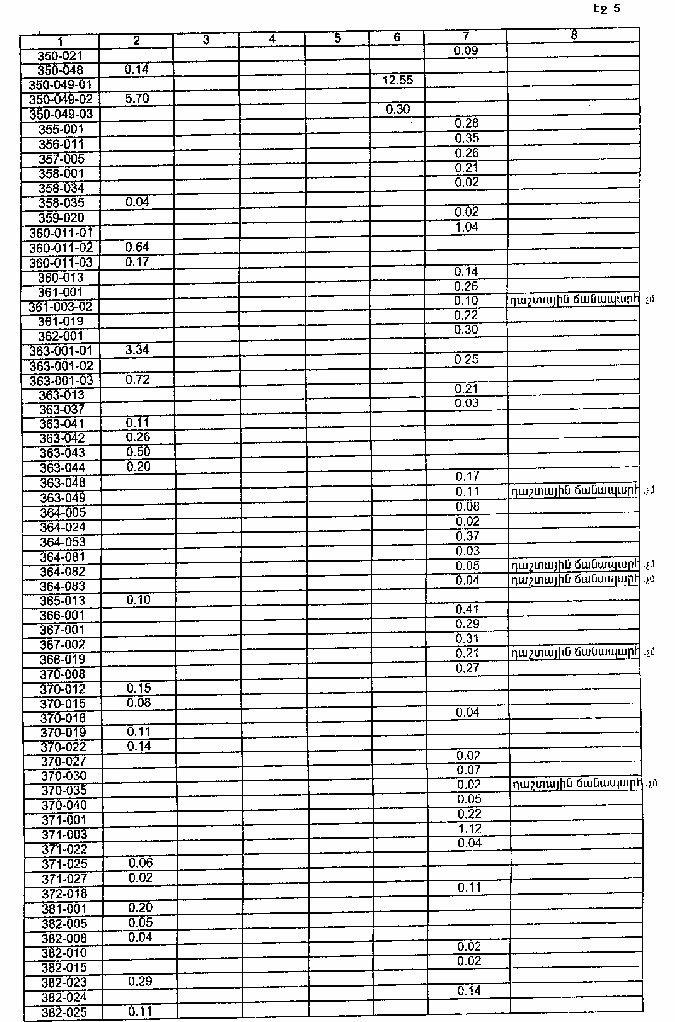 էջ 5
1 2 3 4 5 6 7 8
350-021 0.09
350-048 0.14
350-049-01 12.55
350-049-02 5.70
350-049-03 0.30
355-001 0.28
356-011 0.35
357-005 0.26
358-001 0.21
358-034 0.02
358-035 0.04
359-020 0.02
360-011-01 1.04
360-011-02 0.64
360-011-03 0.17
360-013 0.14
361-001 0.26
361-003-02 0.10 դաշտային ճանապարհ
361-019 0.22
362-001 0.30
363-001-01 3.34
363-001-02 0.25
363-001-03 0.72
363-013 0.21
363-037 0.03
363-041 0.11
363-042 0.26
363-043 0.50
363-044 0.20
363-048 0.17
363-049 0.11 դաշտային ճանապարհ
364-005 0.08
364-024 0.02
364-053 0.37
364-081 0.03
364-082 0.05 դաշտային ճանապարհ
364-083 0.04 դաշտային ճանապարհ
365-013 0.10
366-001 0.41
367-001 0.29
367-002 0.31
368-019 0.21 դաշտային ճանապարհ
370-008 0.27
370-012 0.15
370-015 0.08
370-018 0.04
370-019 0.11
370-022 0.14
370-027 0.02
370-030 0.07
370-035 0.02 դաշտային ճանապարհ
370-040 0.05
371-001 0.22
371-003 1.12
371-022 0.04
371-025 0.06
371-027 0.02
372-018 0.11
381-001 0.20
382-005 0.05
382-008 0.04
382-010 0.02
382-015 0.02
382-023 0.29
382-024 0.14
382-025 0.11